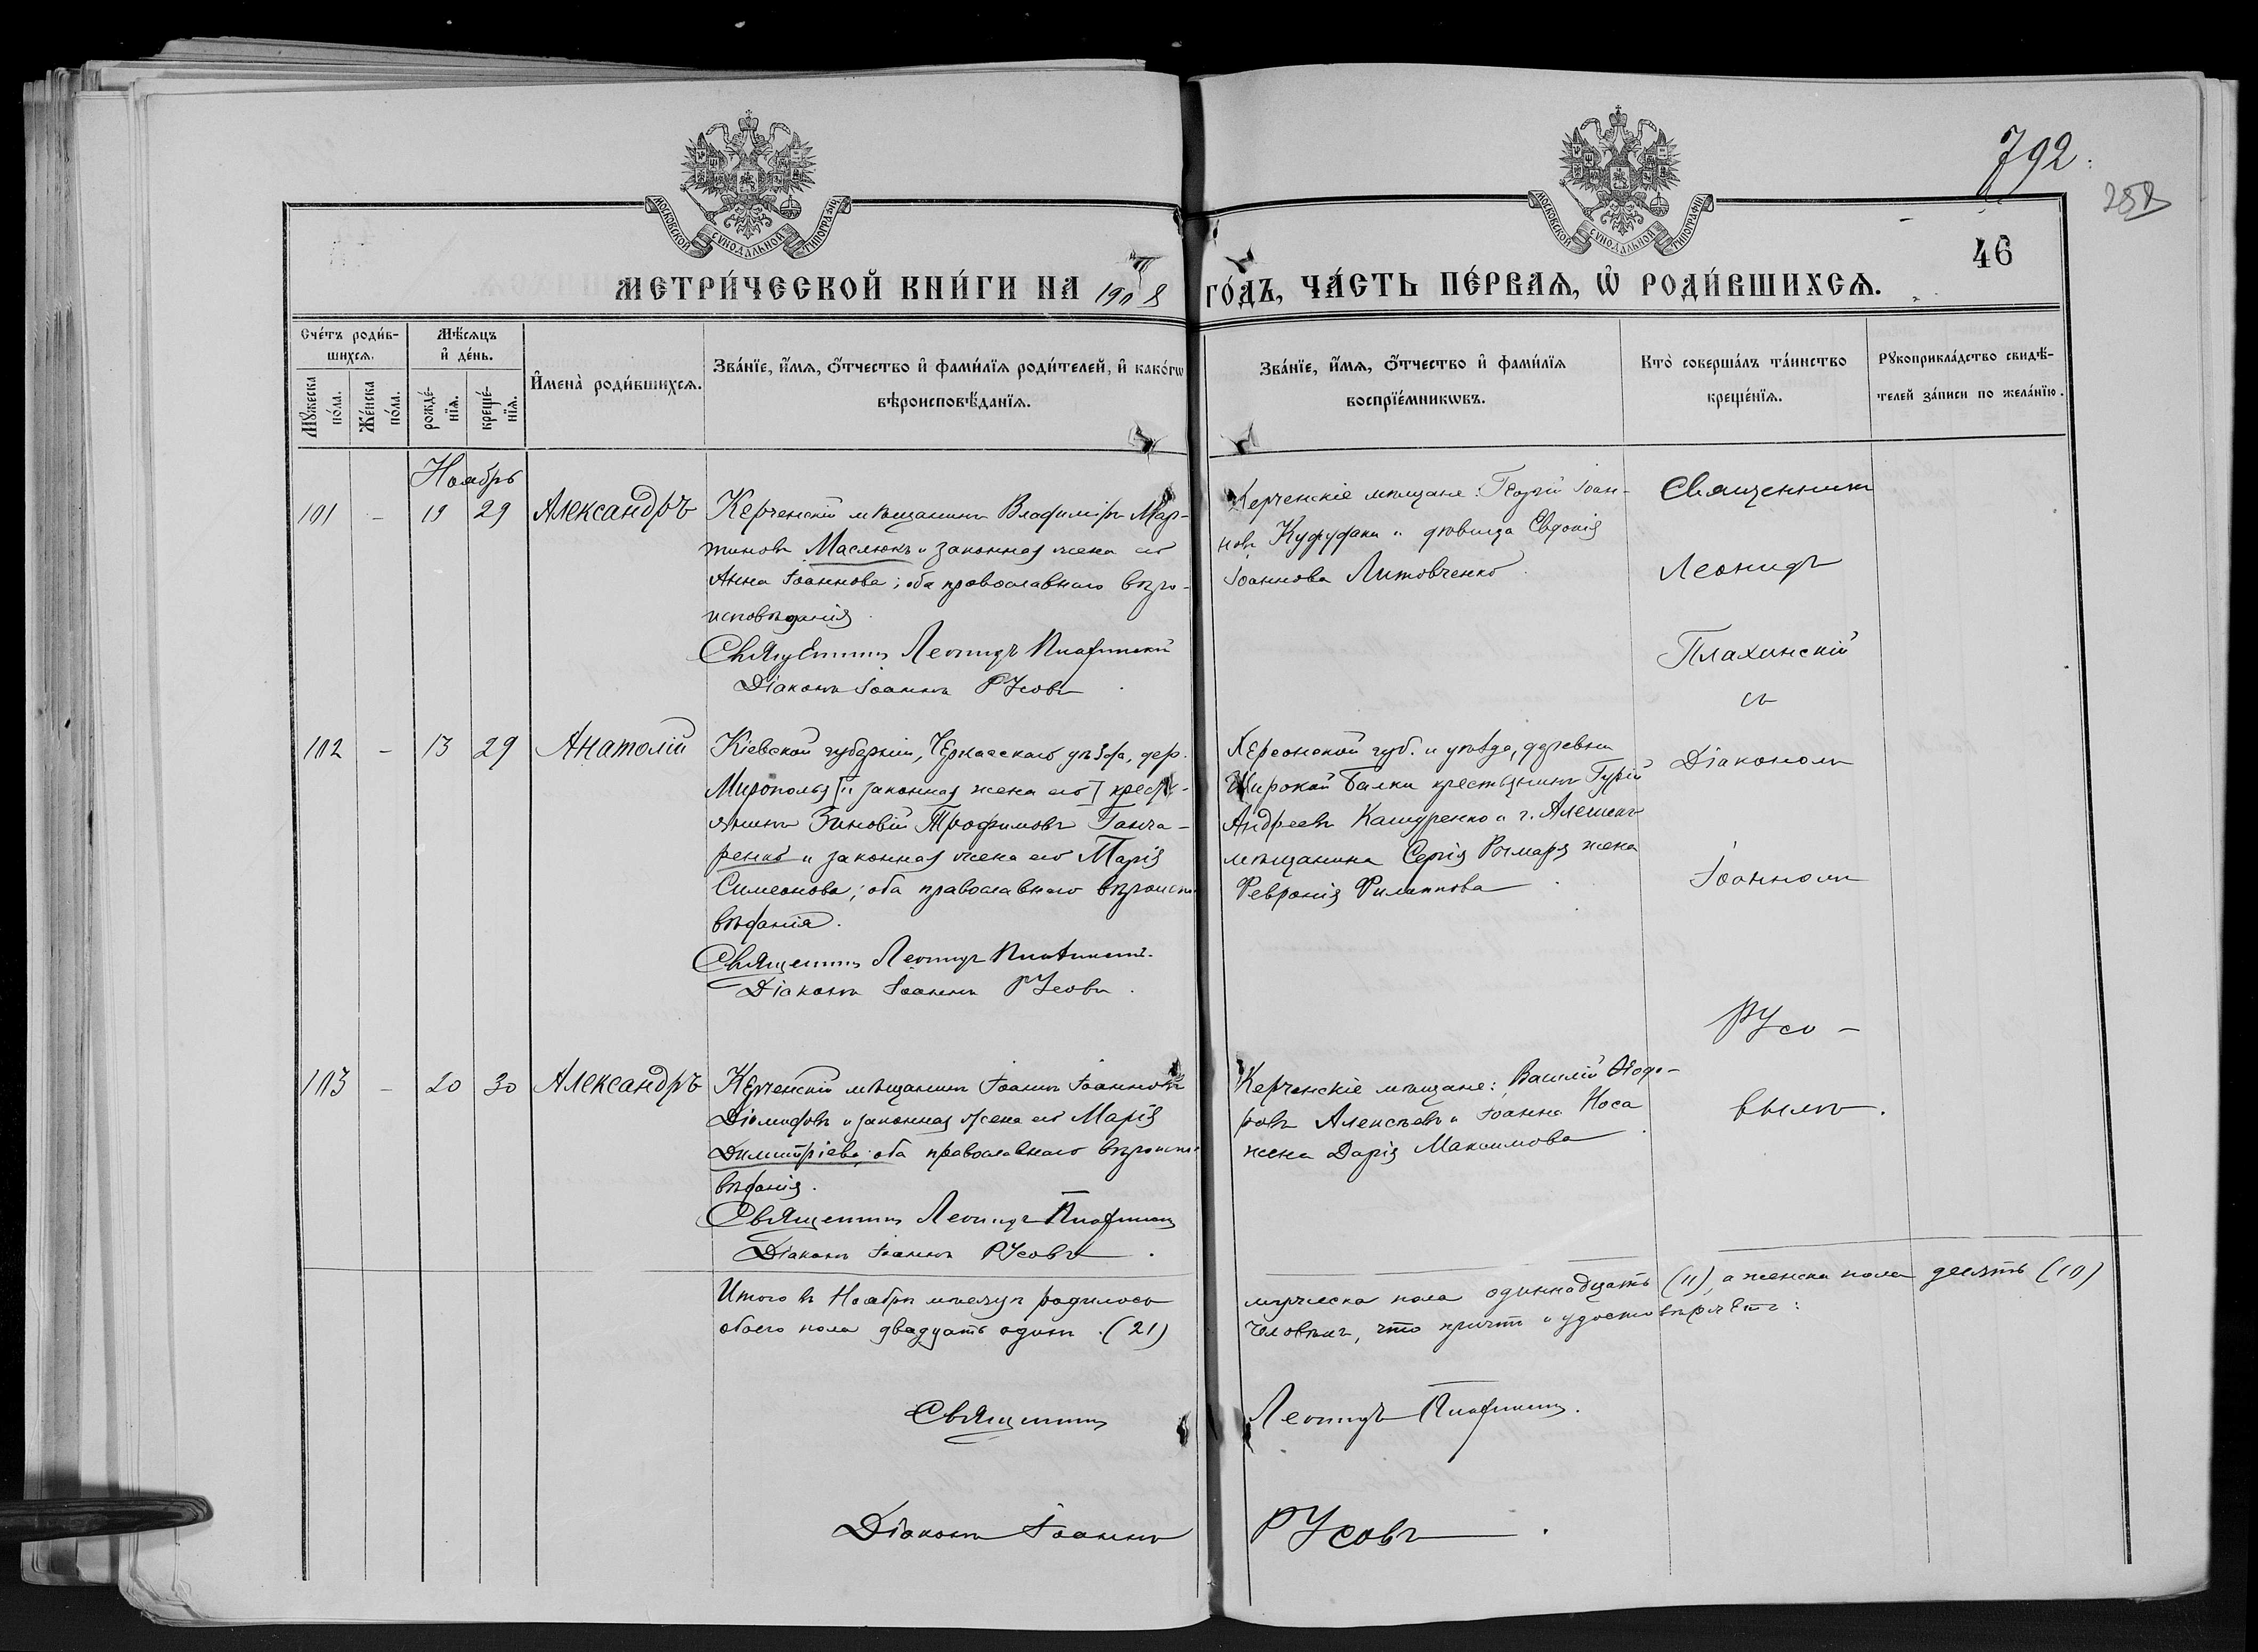 792.
252
46
МОСКОВСКОЙ СѴНОДАЛЬНОЙ ТИПОГРАФІИ
МОСКОВСКОЙ СѴНОДАЛЬНОЙ ТИПОГРАФІИ
МЕТРИ́ЧЕСКОЙ КНИ́ГИ НА 1908 ГО́ДЪ, ЧА́СТЬ ПЕ́РВАѦ, Ѡ҆ РОДИ́ВШИХСѦ.
Сче́тъ роди́в-
шихсѧ.
Мꙋ́жеска по́ла.
Же́нска по́ла.
Мѣ́сѧцъ
и҆ де́нь.
рожде́-
нїѧ.
креще́-
нїѧ.
И҆мена̀ роди́вшихсѧ.
Зва́нїе, и҆́мѧ, ѻ҆́тчество и҆ фами́лїѧ роди́телей, и҆ како́гѡ
вѣроисповѣ́данїѧ.
Зва́нїе, и҆́мѧ, ѻ҆́тчество и҆ фами́лїѧ
воспрїе́мникѡвъ.
Кто̀ соверша́лъ та́инство
креще́нїѧ.
Рꙋкоприкла́дство свидѣ́-
телей за́писи по жела́нїю.
Ноябрь
101 - 19 29 Александръ
Керченскій мѣщанинъ Владиміръ Мар-
тиновъ Маслюкъ и законная жена его
Анна Іоаннова; оба православнаго вѣро-
исповѣданія.
Священникъ Леонидъ Плахинскій
Діаконъ Іоаннъ Русовъ
Керченскіе мѣщане: Георгій Іоан-
новъ и дѣвица Евдокія
Іоаннова Литовченко.
Священникъ
Леонидъ
Плахинскій
съ
Діакономъ
Іоанномъ
Русо-
вымъ.
102 - 13 29 Анатолій
Кіевской губерніи, Черкасскаго уѣзда, дер.
Мирополья [и законная жена его] крестья-
янинъ Зиновій Трофимовъ Ганча-
ренко и законная жена его Марія
Симеонова; оба православнаго вѣроиспо-
вѣданія.
Священникъ Леонидъ Плахинскій.
Діаконъ Іоаннъ Русовъ.
Херсонской губ. и уѣзда, деревни
Широкой Балки крестьянинъ Гурій
Андреевъ Кашуренко и г. Алешекъ
мѣщанина Сергія Рымаря жена
Февронія Филиппова.
103 - 20 30 Александръ
Керченскій мѣщанинъ Іоаннъ Іоанновъ
Діомидовъ и законная жена его Марія
Димитріева; оба православнаго вѣроиспо-
вѣданія.
Священникъ Леонидъ Плахинскій
Діаконъ Іоаннъ Русовъ.
Керченскіе мѣщане: Василій Ѳеодо-
ровъ Алексѣевъ и Іоанна Носа
жена Дарія Максимова.
Итого въ Ноябрѣ мѣсяцѣ родилось
обоего пола двадцать одинъ. (21)
мужеска пола одиннадцать (11), а женска пола десять (10)
человѣкъ, что причтъ и удостовѣряетъ:
Священникъ Леонидъ Плахинскій.
Діаконъ Іоаннъ Русовъ.